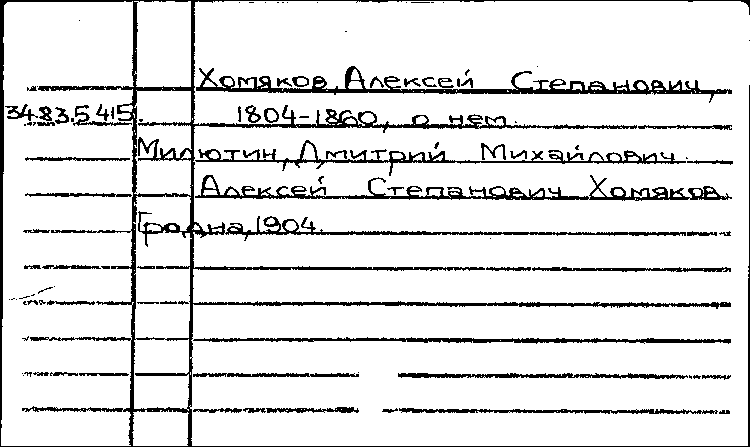 Хомяков, Алексей Степанович,
3483.5.415. 1804-1860, о нем.
Милютин, Дмитрий Михайлович.
Алексей Степанович Хомяков.
Гродна, 1904.